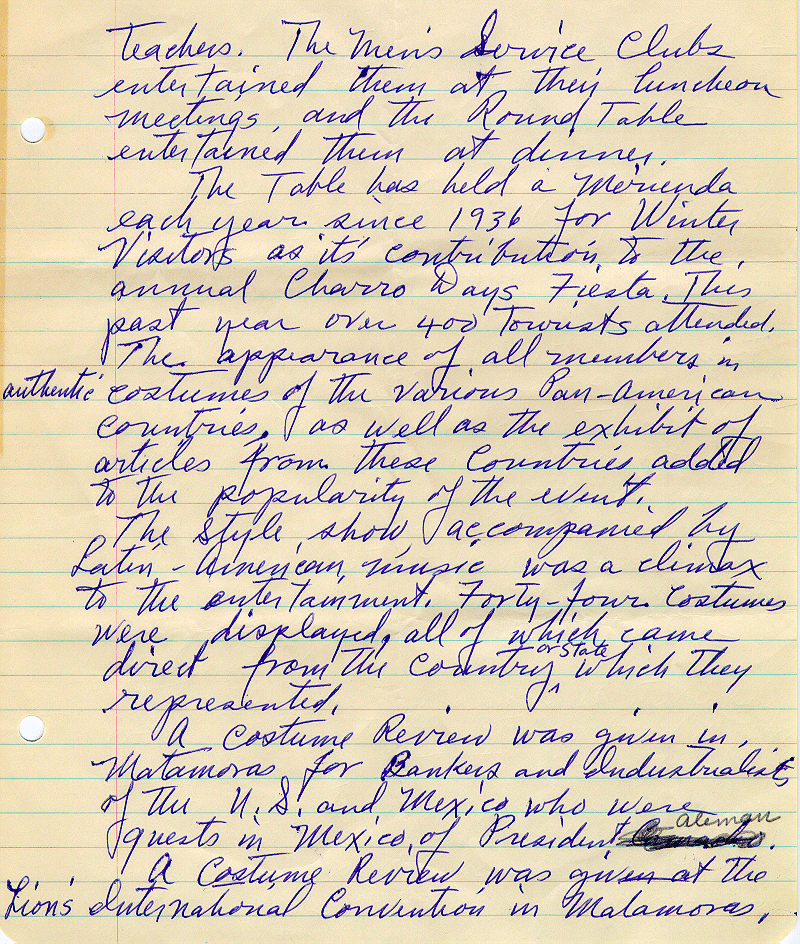 teachers. The Men's Service Clubs
entertained them at their luncheon
meetings, and the Round Table
entertained them at dinner.
The Table has held a Merienda
each year since 1936 for Winter
Visitors as it's contribution to the
annual Charro Days Fiesta. This
past year over 400 Tourists attended.
The appearance of all members in
authentic costumes of the various Pan-American
countries, as well as the exhibit of
articles from these countries added
to the popularity of the event.
The style show, accompanied by
Latin-American music was a climax
to the entertainment. Forty-four costumes
were displayed, all of which came
direct from the country or State which they
represented.
A Costume Review was given in
Matamoras for Bankers and Industrialists
of the U.S. and Mexico who were
guests in Mexico, of President Aleman.
A Costume Review was given at the
Lion's International Convention in Matamoras,